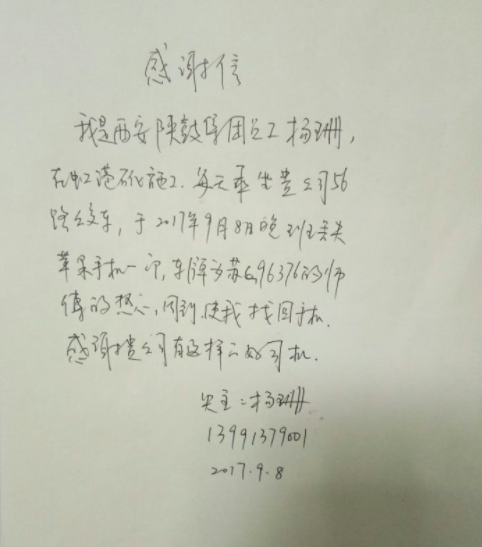 感谢信
我是西安陕鼓集团员工杨珊,
在虹港石化施工.每天乘坐贵公司56
路公交车,于2017年9月8日晚班丢失
苹果手机一次,车牌为苏G96376的师
傅的热心,周到,使我找回手机.
感谢贵公司有这样的好司机.
失主:杨珊
13991379001
2017.9.8